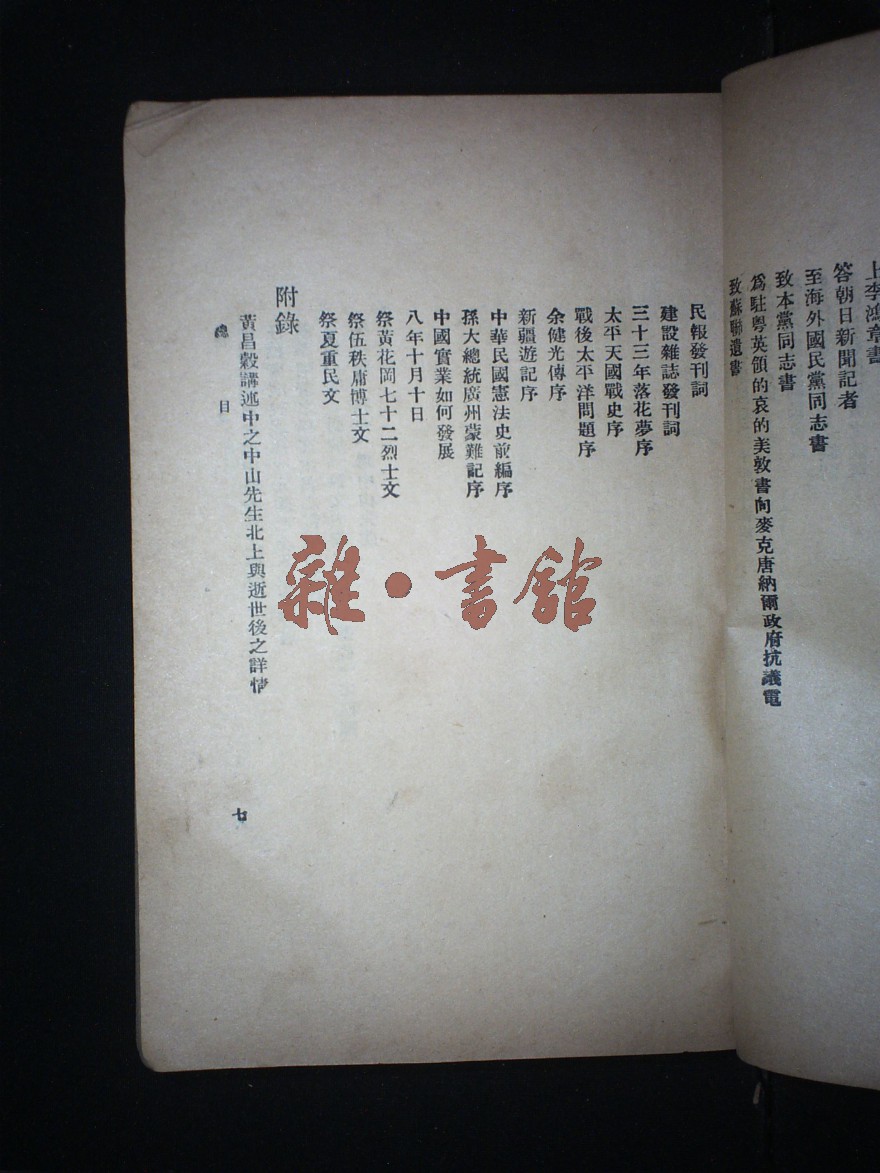 上李鴻章書
答朝日新聞記者
至海外國民黨同志書
致本黨同志書
爲駐粤英領的哀的美敦書向麥克唐納爾政府抗議電
致蘇聯遺書
民報發刊詞
建設雜誌發刊詞
三十三年落花夢序
太平天國戰史序
戰後太平洋問題序
余健光傳序
新疆遊記序
中華民國憲法史前編序
孫大總統廣州蒙難記序
中國實業如何發展
八年十月十日
祭黃花岡七十二烈士文
祭伍秩庸博士文
祭夏重民文
附錄
黃昌穀講述中之中山先生北上與逝世後之詳情
總目
七
雜·書館